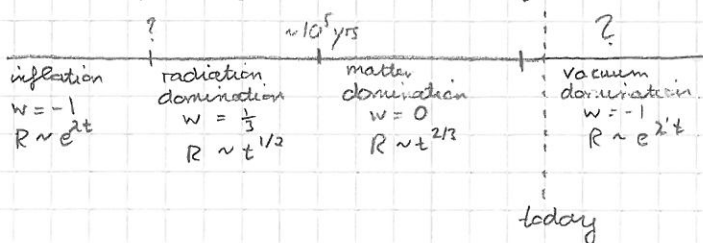 ?
~10⁵ yrs
?
inflation
w = -1
R ~ e^{λt}
radiation
domination
w = 1/3
R ~ t^{1/2}
matter
domination
w = 0
R ~ t^{2/3}
vacuum
domination
w = -1
R ~ e^{λ't}
today